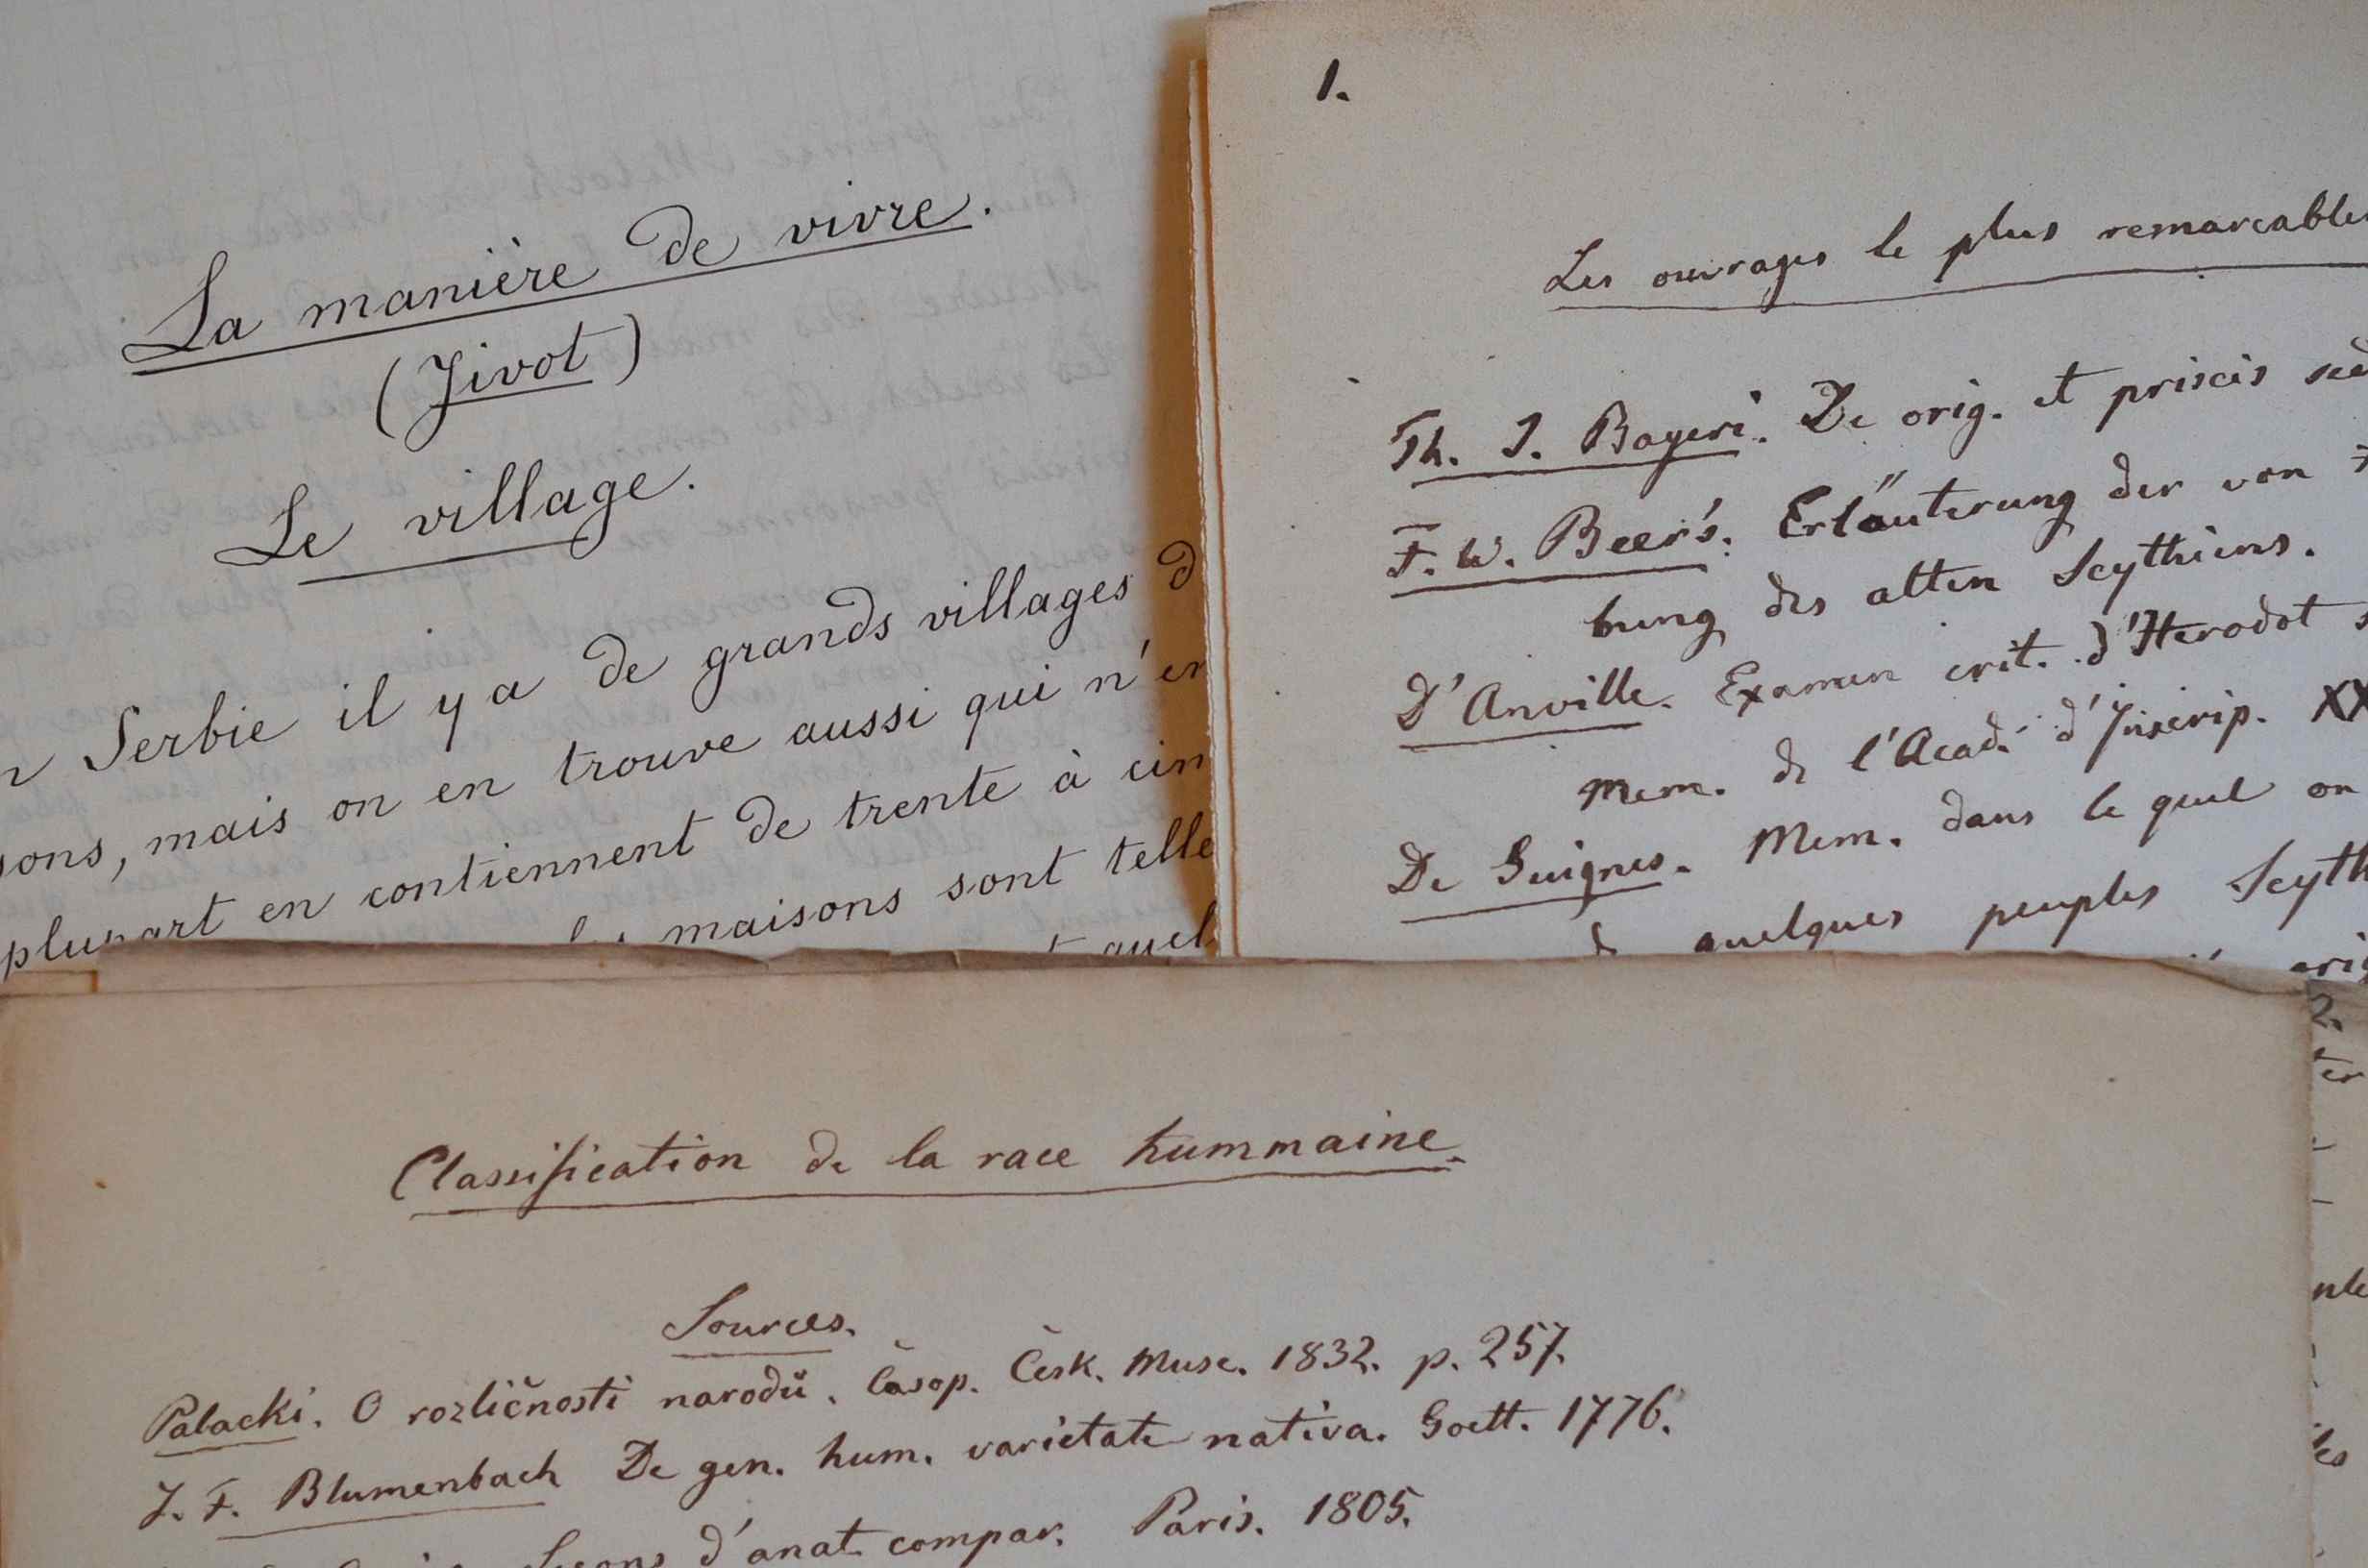 La manière de vivre.
(Jivot)
Le village.
Serbie il y a de grands villages d
sons, mais on en trouve aussi qui n'en
plupart en contiennent de trente à cin
maisons sont telle
quel
1.
Les ouvrages le plus remarcables
Th. S. Bayeri. De orig. et priscis sed
F. W. Beer's. Erläuterung der von
bung des alten Scythiens.
D'Anville. Examen crit. d'Herodot s
Mem. de l'Acad. d'Inscrip. XX
De Guignes. Mem. dans le quel on
de quelques peuples Scyth
orig
Classification de la race hummaine.
Sources.
Palacki. O rozličnosti narodů. Časop. Česk. Muse. 1832. p. 257.
J. F. Blumenbach De gen. hum. varietate nativa. Goett. 1776.
Leçons d'anat compar. Paris. 1805.
2.